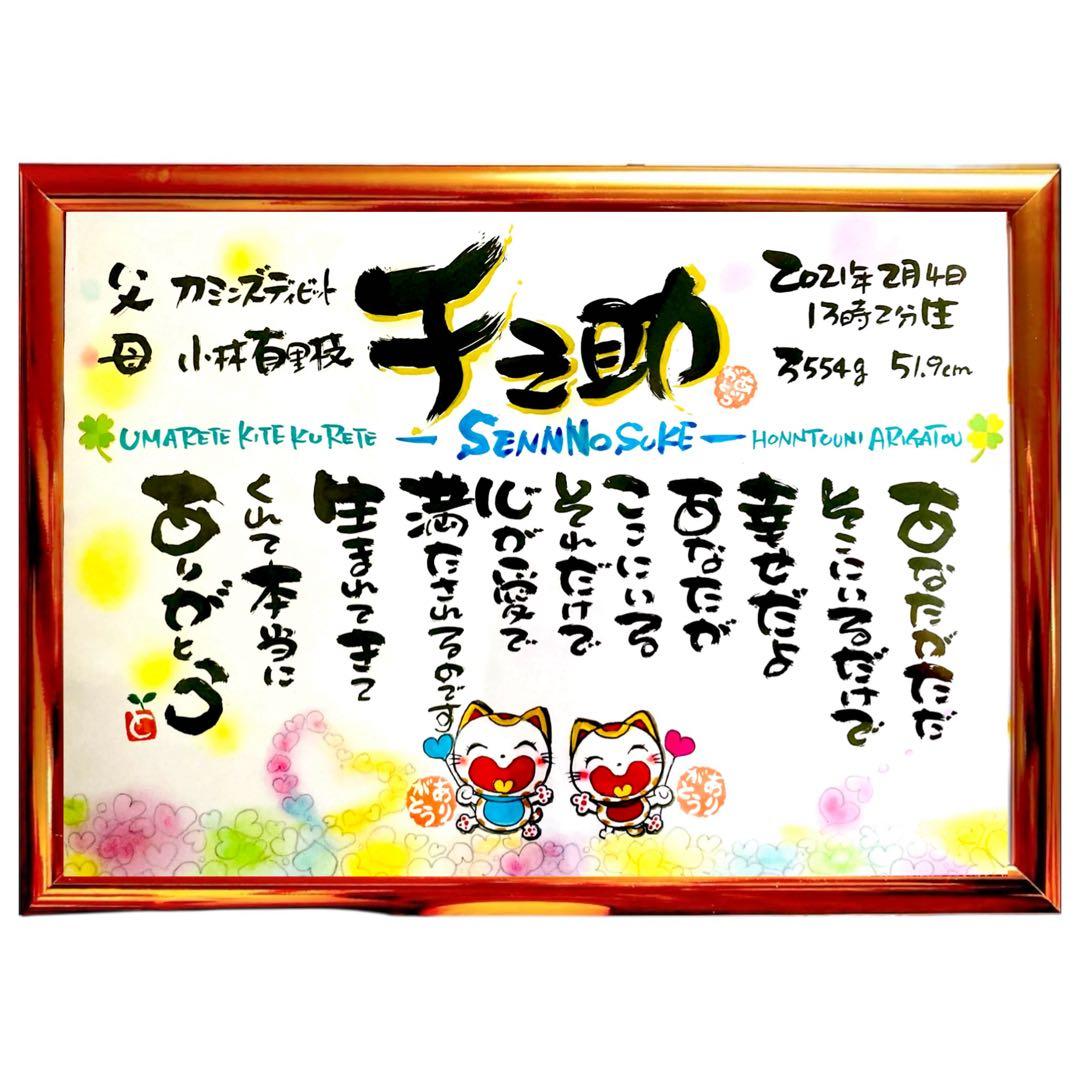 父 カミンズディビット
母 小林有里枝
千之助
2021年2月4日
13時2分生
3554g 51.9cm
UMARETE KITE KURETE — SENNNOSUKE — HONNTOUNI ARIGATOU
あなたがただ
そこにいるだけで
幸せだよ
あなたが
ここにいる
それだけで
心が愛で
満たされるのです
生まれてきて
くれて本当に
ありがとう
ありがとう
ありがとう
ありがとう